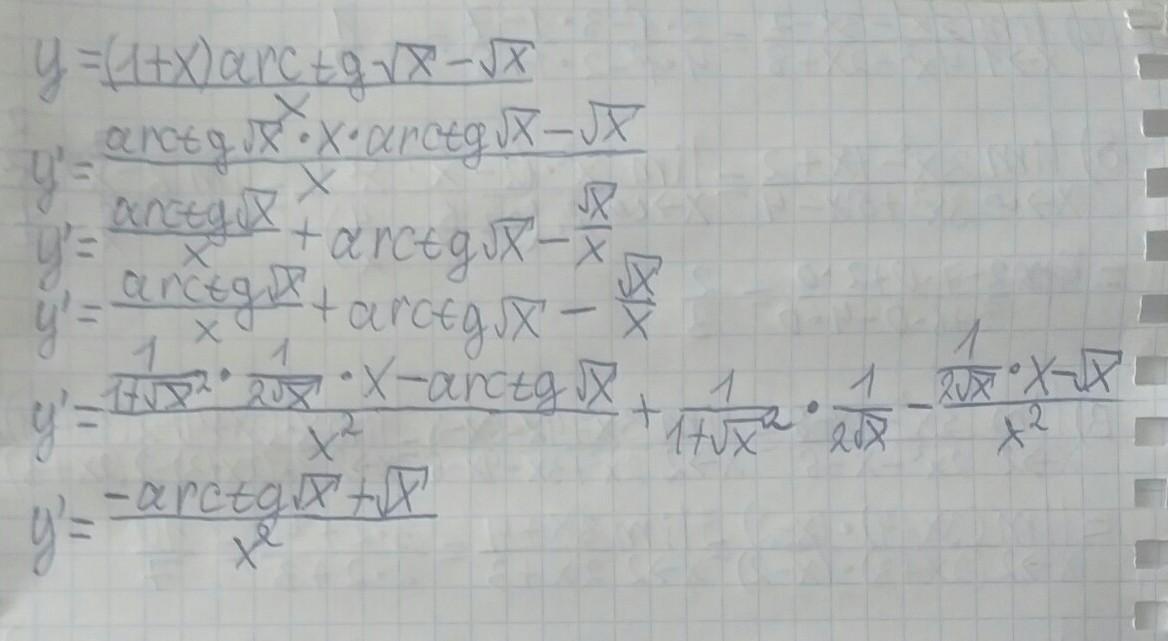 y = ((1+x)arctg√x − √x)/x
y' = (arctg√x · x · arctg√x − √x)/x
y' = arctg√x/x + arctg√x − √x/x
y' = arctg√x/x + arctg√x − √x/x
y' = (1/(1+√x²) · 1/(2√x) · x − arctg√x)/x² + 1/(1+√x²) · 1/(2√x) − (1/(2√x) · x − √x)/x²
y' = (−arctg√x + √x)/x²